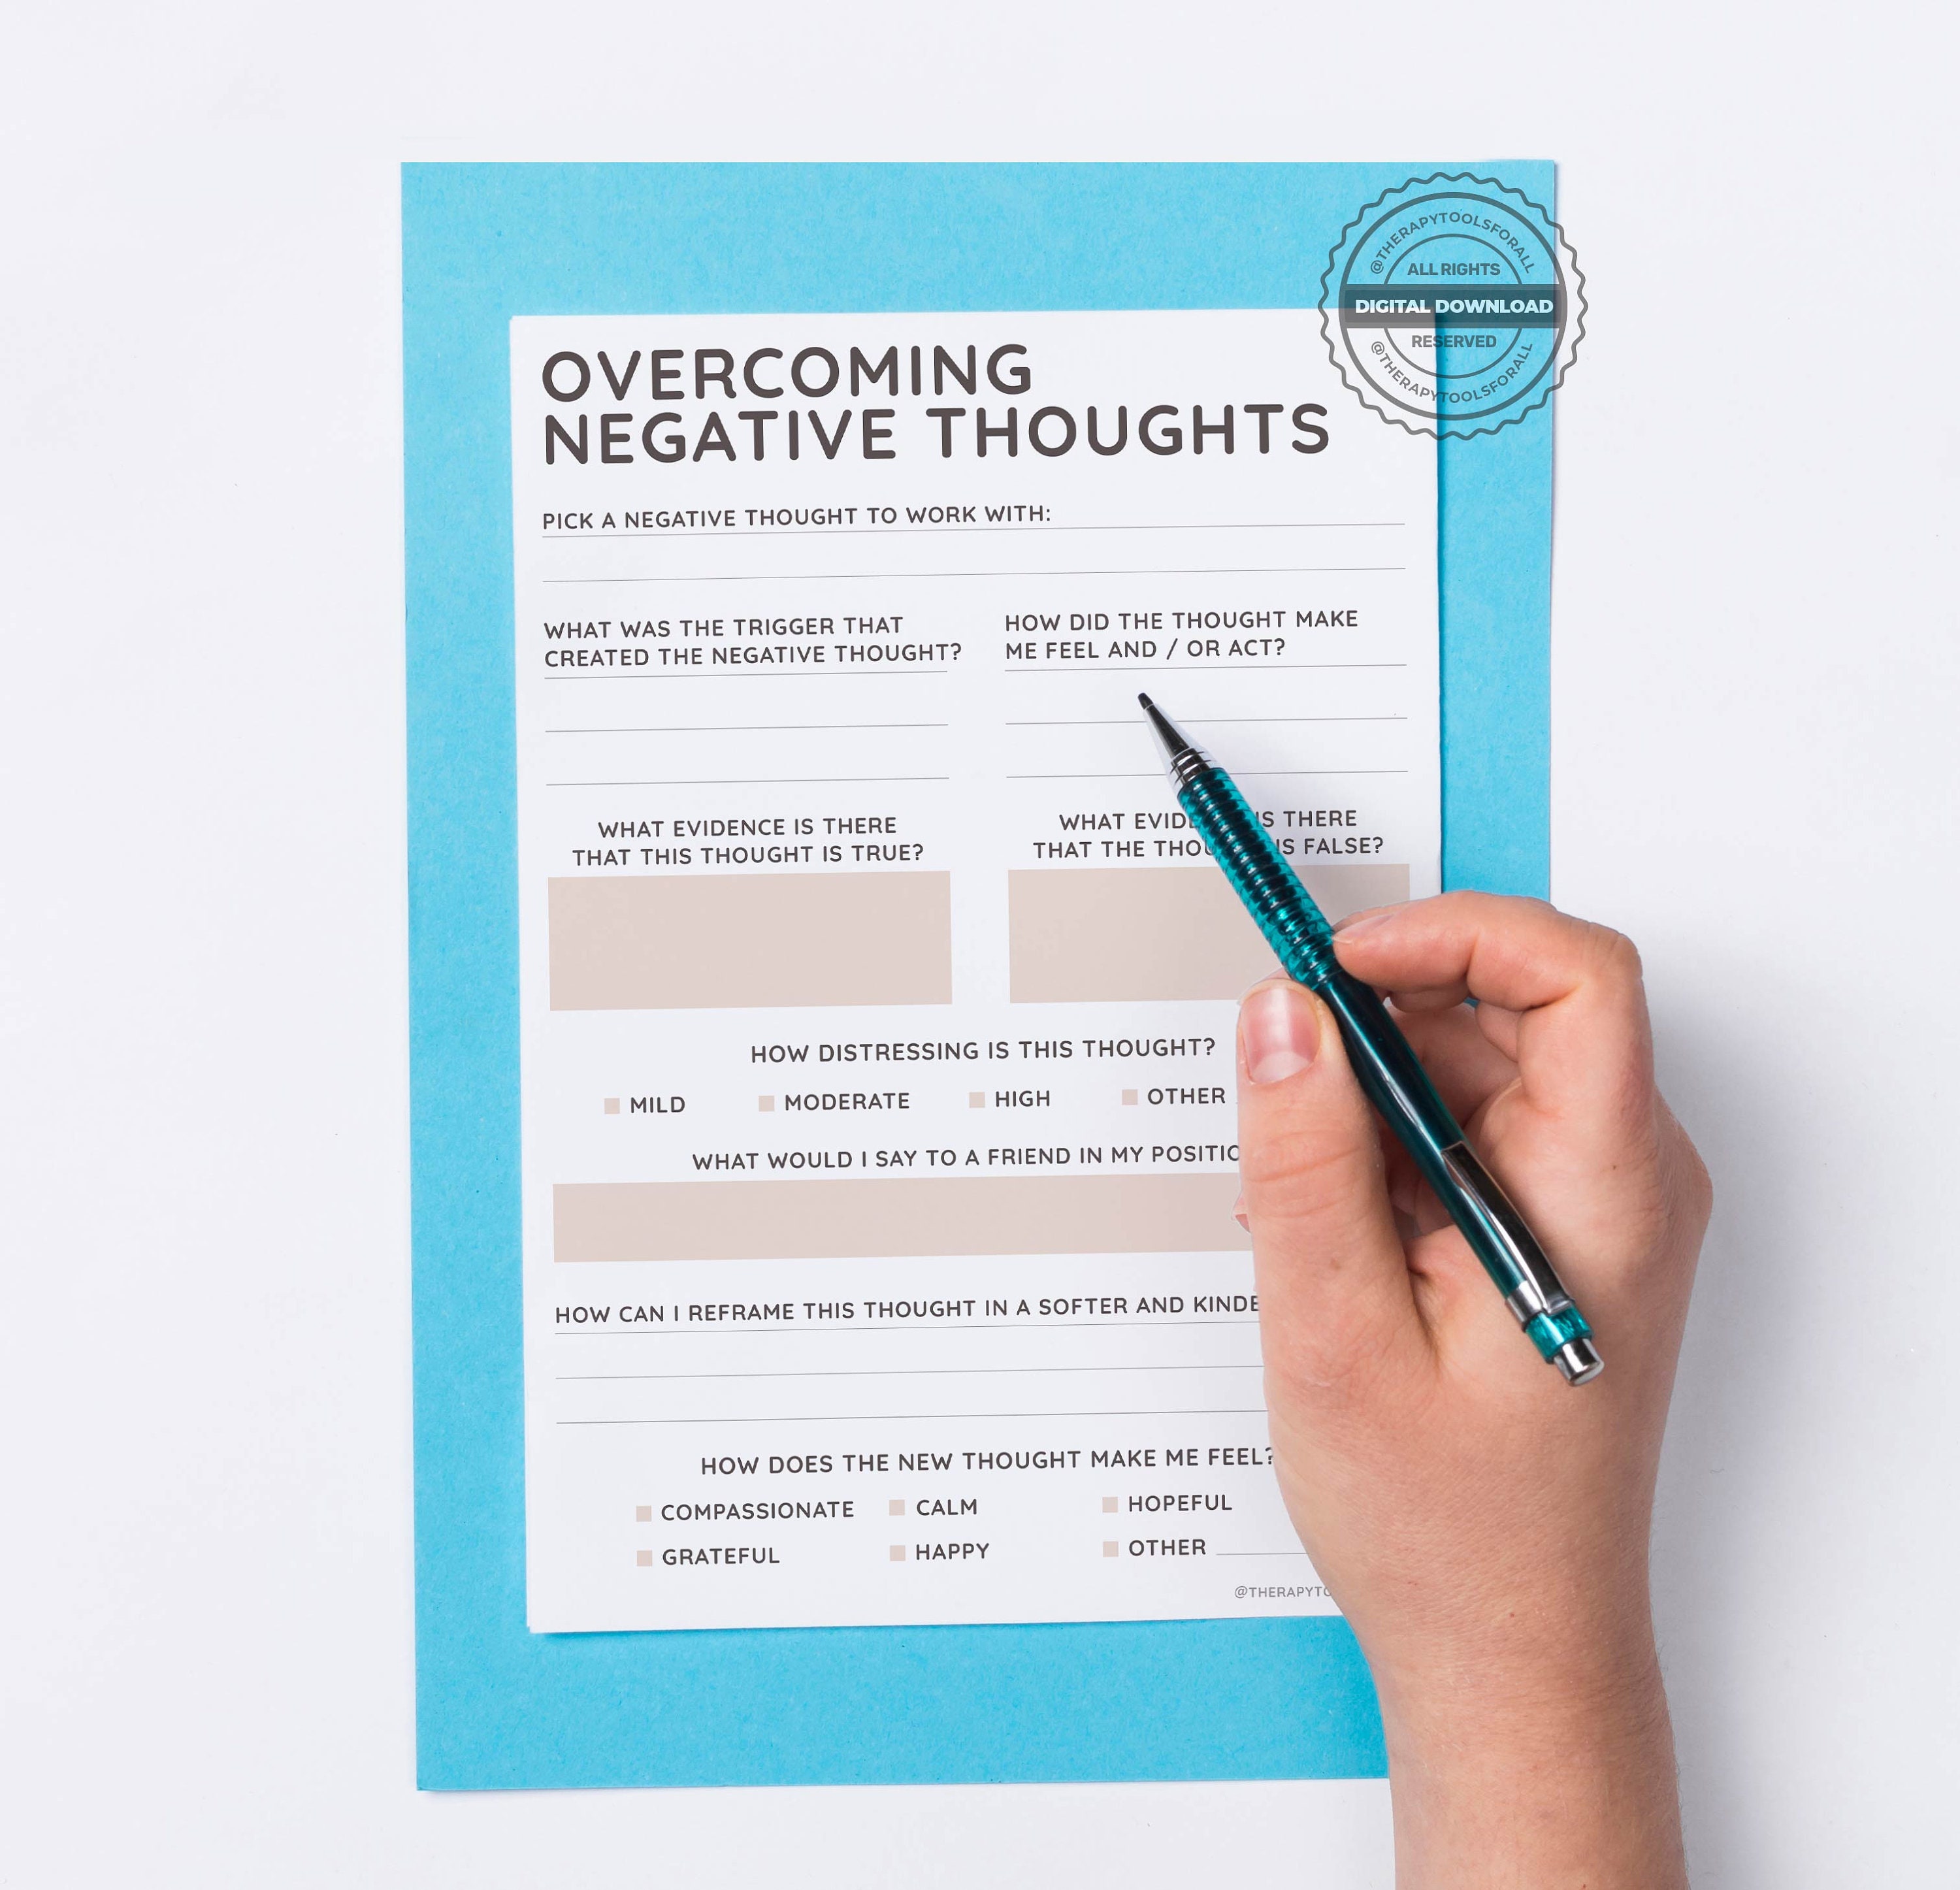 @THERAPYTOOLSFORALL
ALL RIGHTS
DIGITAL DOWNLOAD
RESERVED
@THERAPYTOOLSFORALL
OVERCOMING
NEGATIVE THOUGHTS
PICK A NEGATIVE THOUGHT TO WORK WITH:
WHAT WAS THE TRIGGER THAT
CREATED THE NEGATIVE THOUGHT?
HOW DID THE THOUGHT MAKE
ME FEEL AND / OR ACT?
WHAT EVIDENCE IS THERE
THAT THIS THOUGHT IS TRUE?
WHAT IS THERE
THAT THE IS FALSE?
HOW DISTRESSING IS THIS THOUGHT?
MILD MODERATE HIGH OTHER
WHAT WOULD I SAY TO A FRIEND IN MY
HOW CAN I REFRAME THIS THOUGHT IN A SOFTER AND
HOW DOES THE NEW THOUGHT MAKE ME FEEL?
COMPASSIONATE CALM HOPEFUL
GRATEFUL HAPPY OTHER